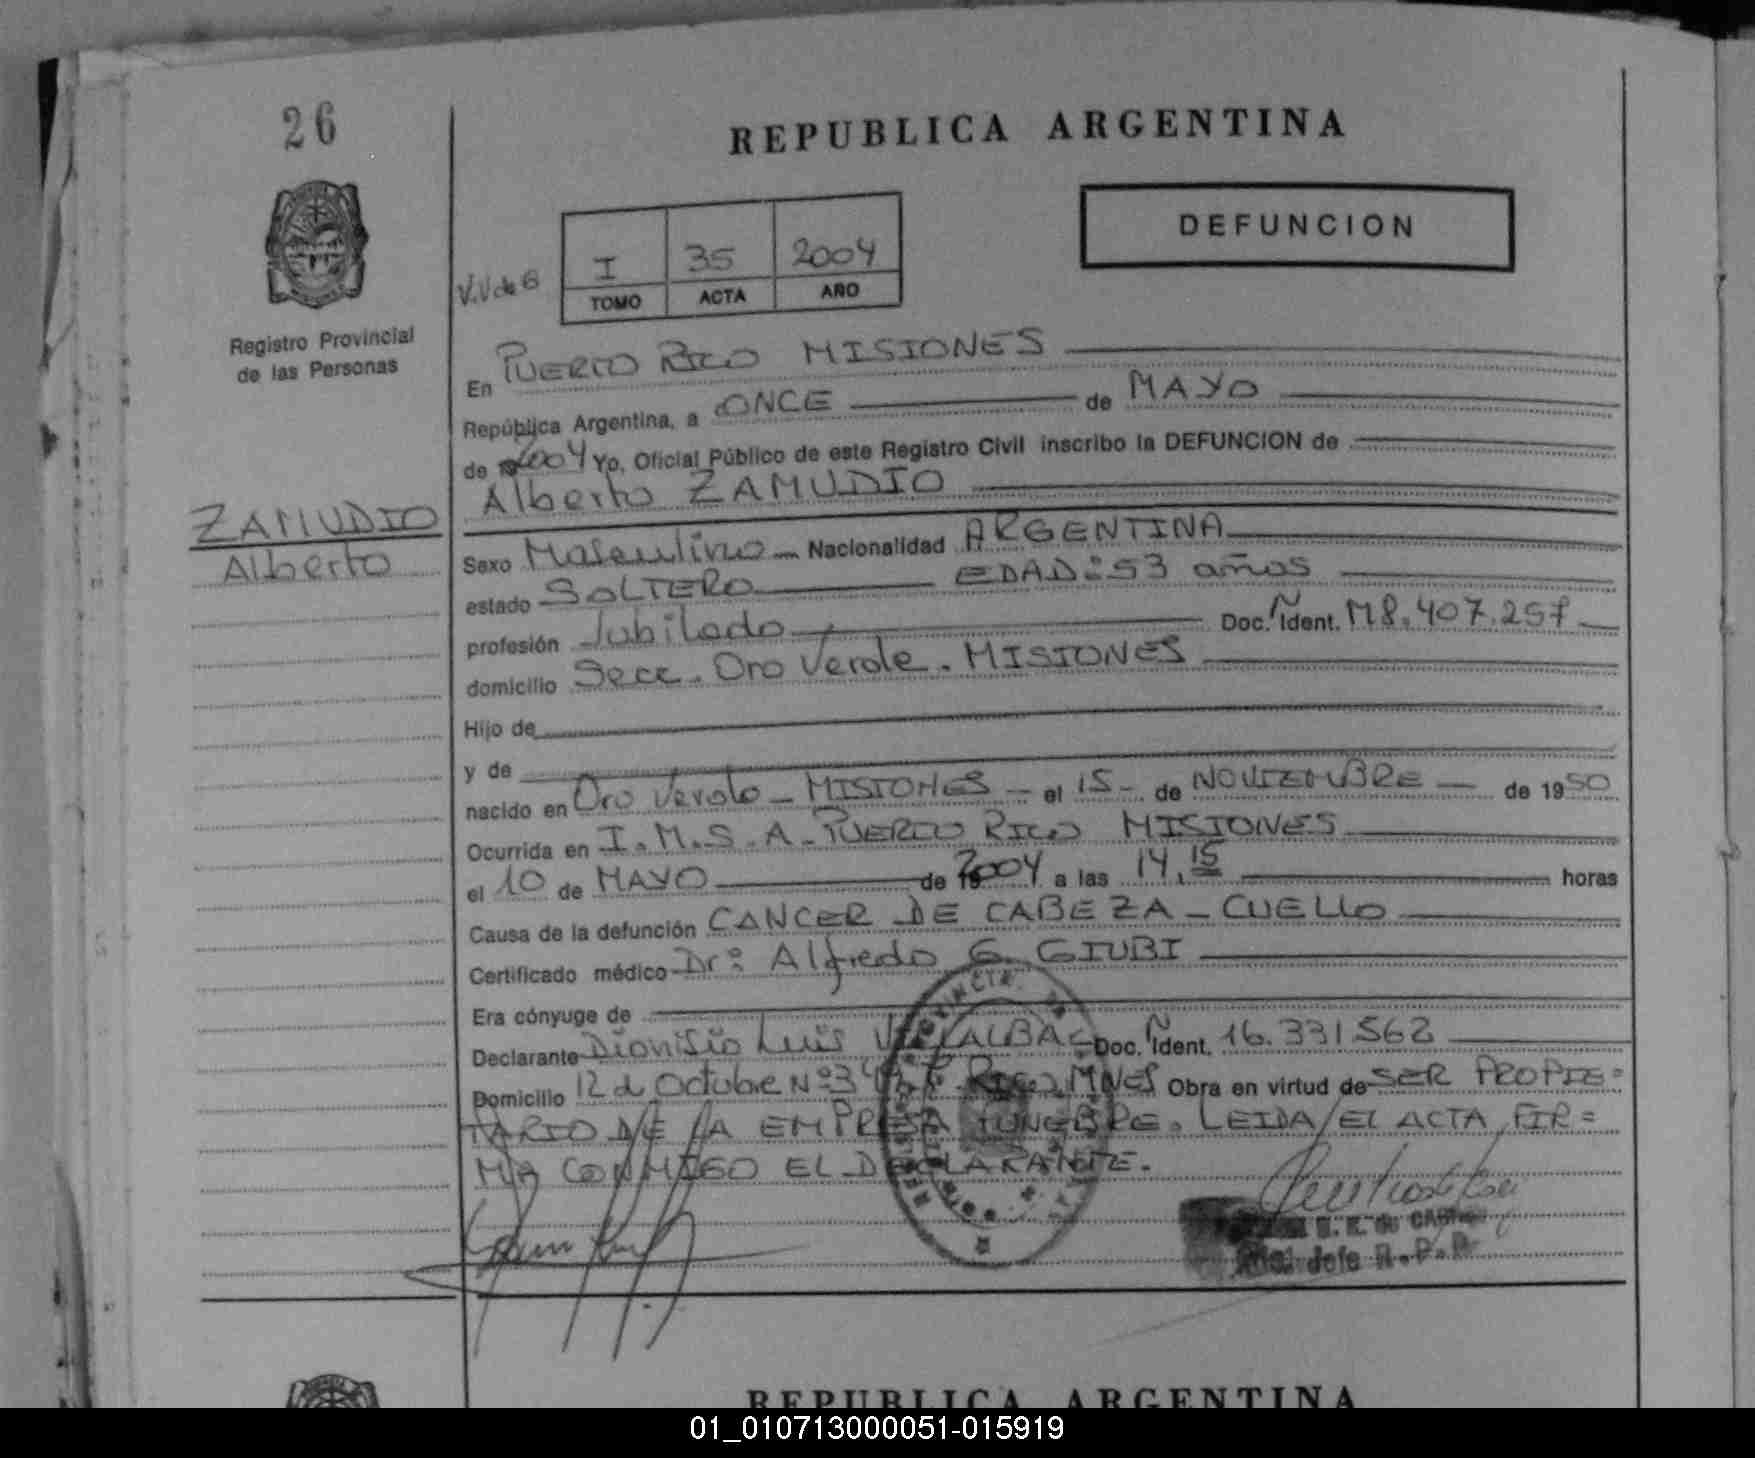 26
REPUBLICA ARGENTINA
DEFUNCION
V.V de G
I 35 2004
TOMO ACTA AÑO
Registro Provincial
de las Personas
En PUERTO RICO MISIONES
República Argentina, a ONCE de MAYO
de 2004 Yo, Oficial Público de este Registro Civil inscribo la DEFUNCION de
Alberto ZAMUDIO
ZAMUDIO
Alberto
Sexo Masculino Nacionalidad ARGENTINA
estado SOLTERO EDAD: 53 años
profesión Jubilado Doc. Ident. M8.407.257
domicilio Secc. Oro Verde. MISIONES
Hijo de
y de
nacido en Oro Verde - MISIONES - el 15 - de NOVIEMBRE de 1950
Ocurrida en I.M.S.A. PUERTO RICO MISIONES
el 10 de MAYO de 2004 a las 14,15 horas
Causa de la defunción CANCER DE CABEZA - CUELLO
Certificado médico Dr: Alfredo G. GIUBI
Era cónyuge de
Declarante Dionisio Luis VILLALBA Doc. Ident. 16.331.562
Domicilio 12 de Octubre Nº 34 P. RICO MNES Obra en virtud de SER PROPIE=
TARIO DE LA EMPRESA FUNEBRE. LEIDA EL ACTA, FIR=
MA CONMIGO EL DECLARANTE.
Jefe R.P.P.
REPUBLICA ARGENTINA
01_010713000051-015919